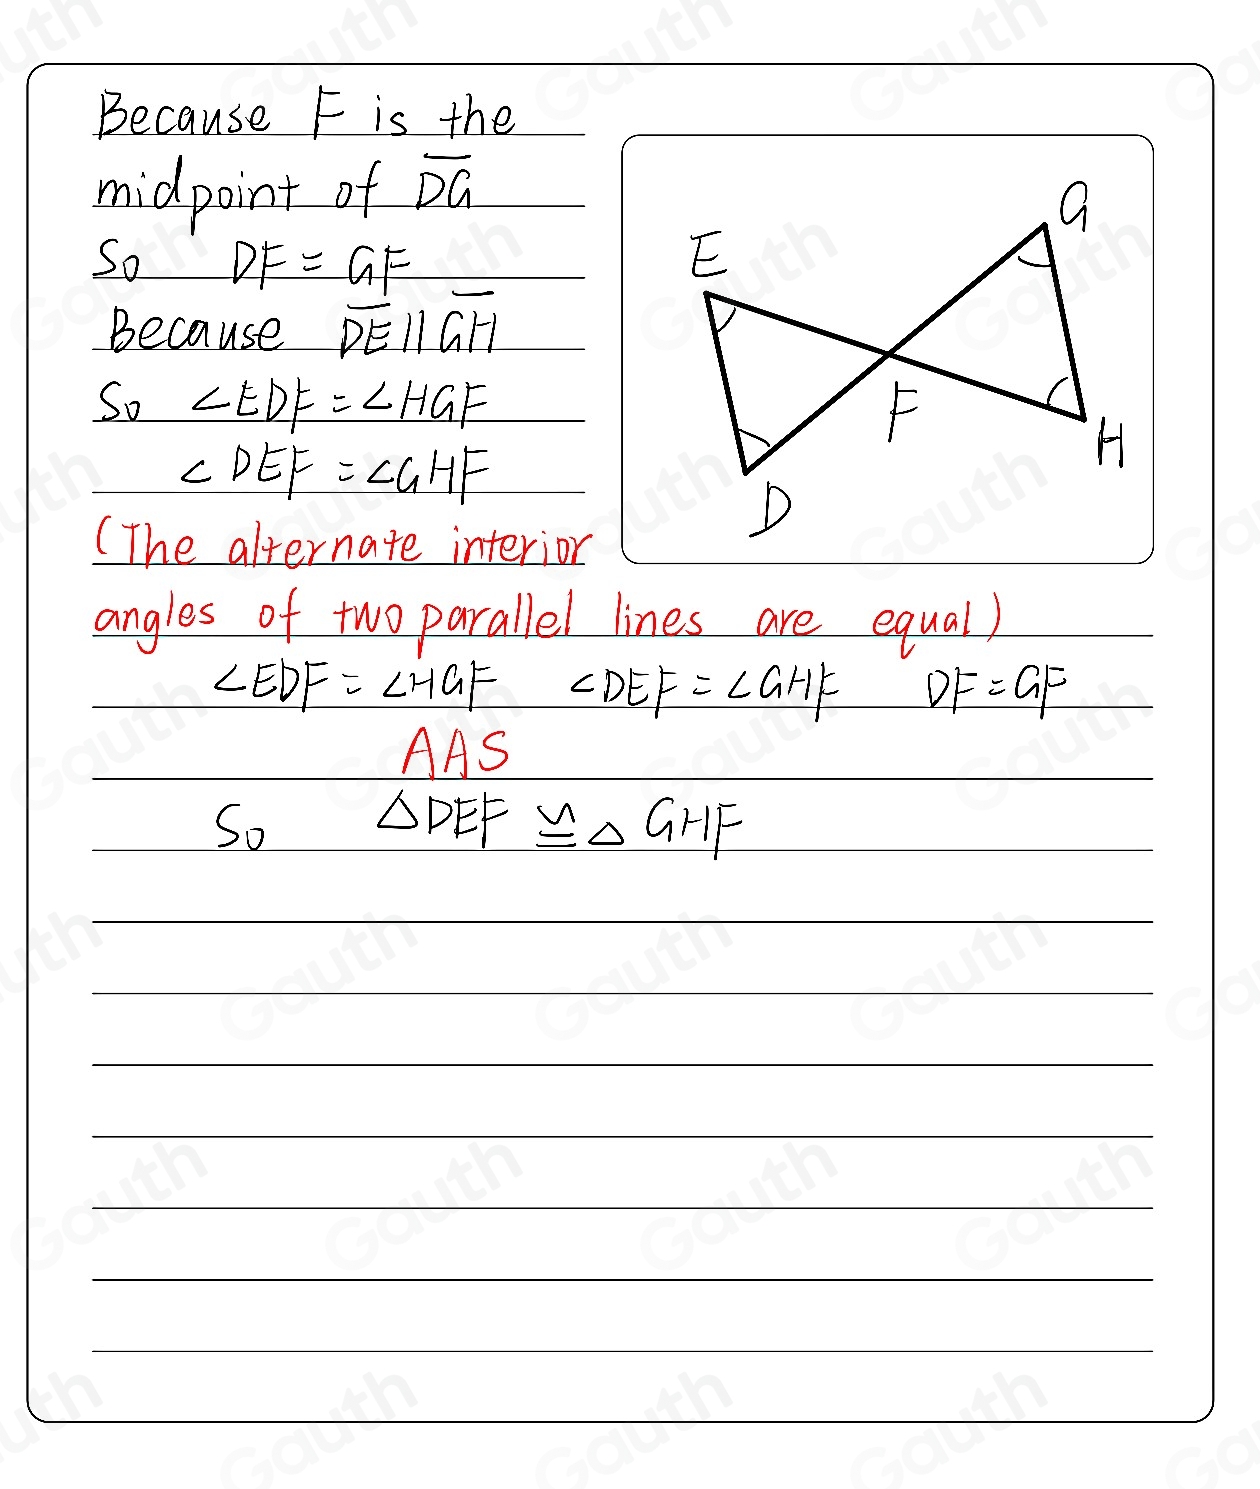 Because F is the
midpoint of D̅G̅
So DF = GF
Because D̅E̅ || G̅H̅
So ∠EDF = ∠HGF
∠DEF = ∠GHF
(The alternate interior
angles of two parallel lines are equal)
∠EDF = ∠HGF ∠DEF = ∠GHF DF = GF
AAS
So △DEF ≌ △GHF
E
G
F
H
D
Gauth